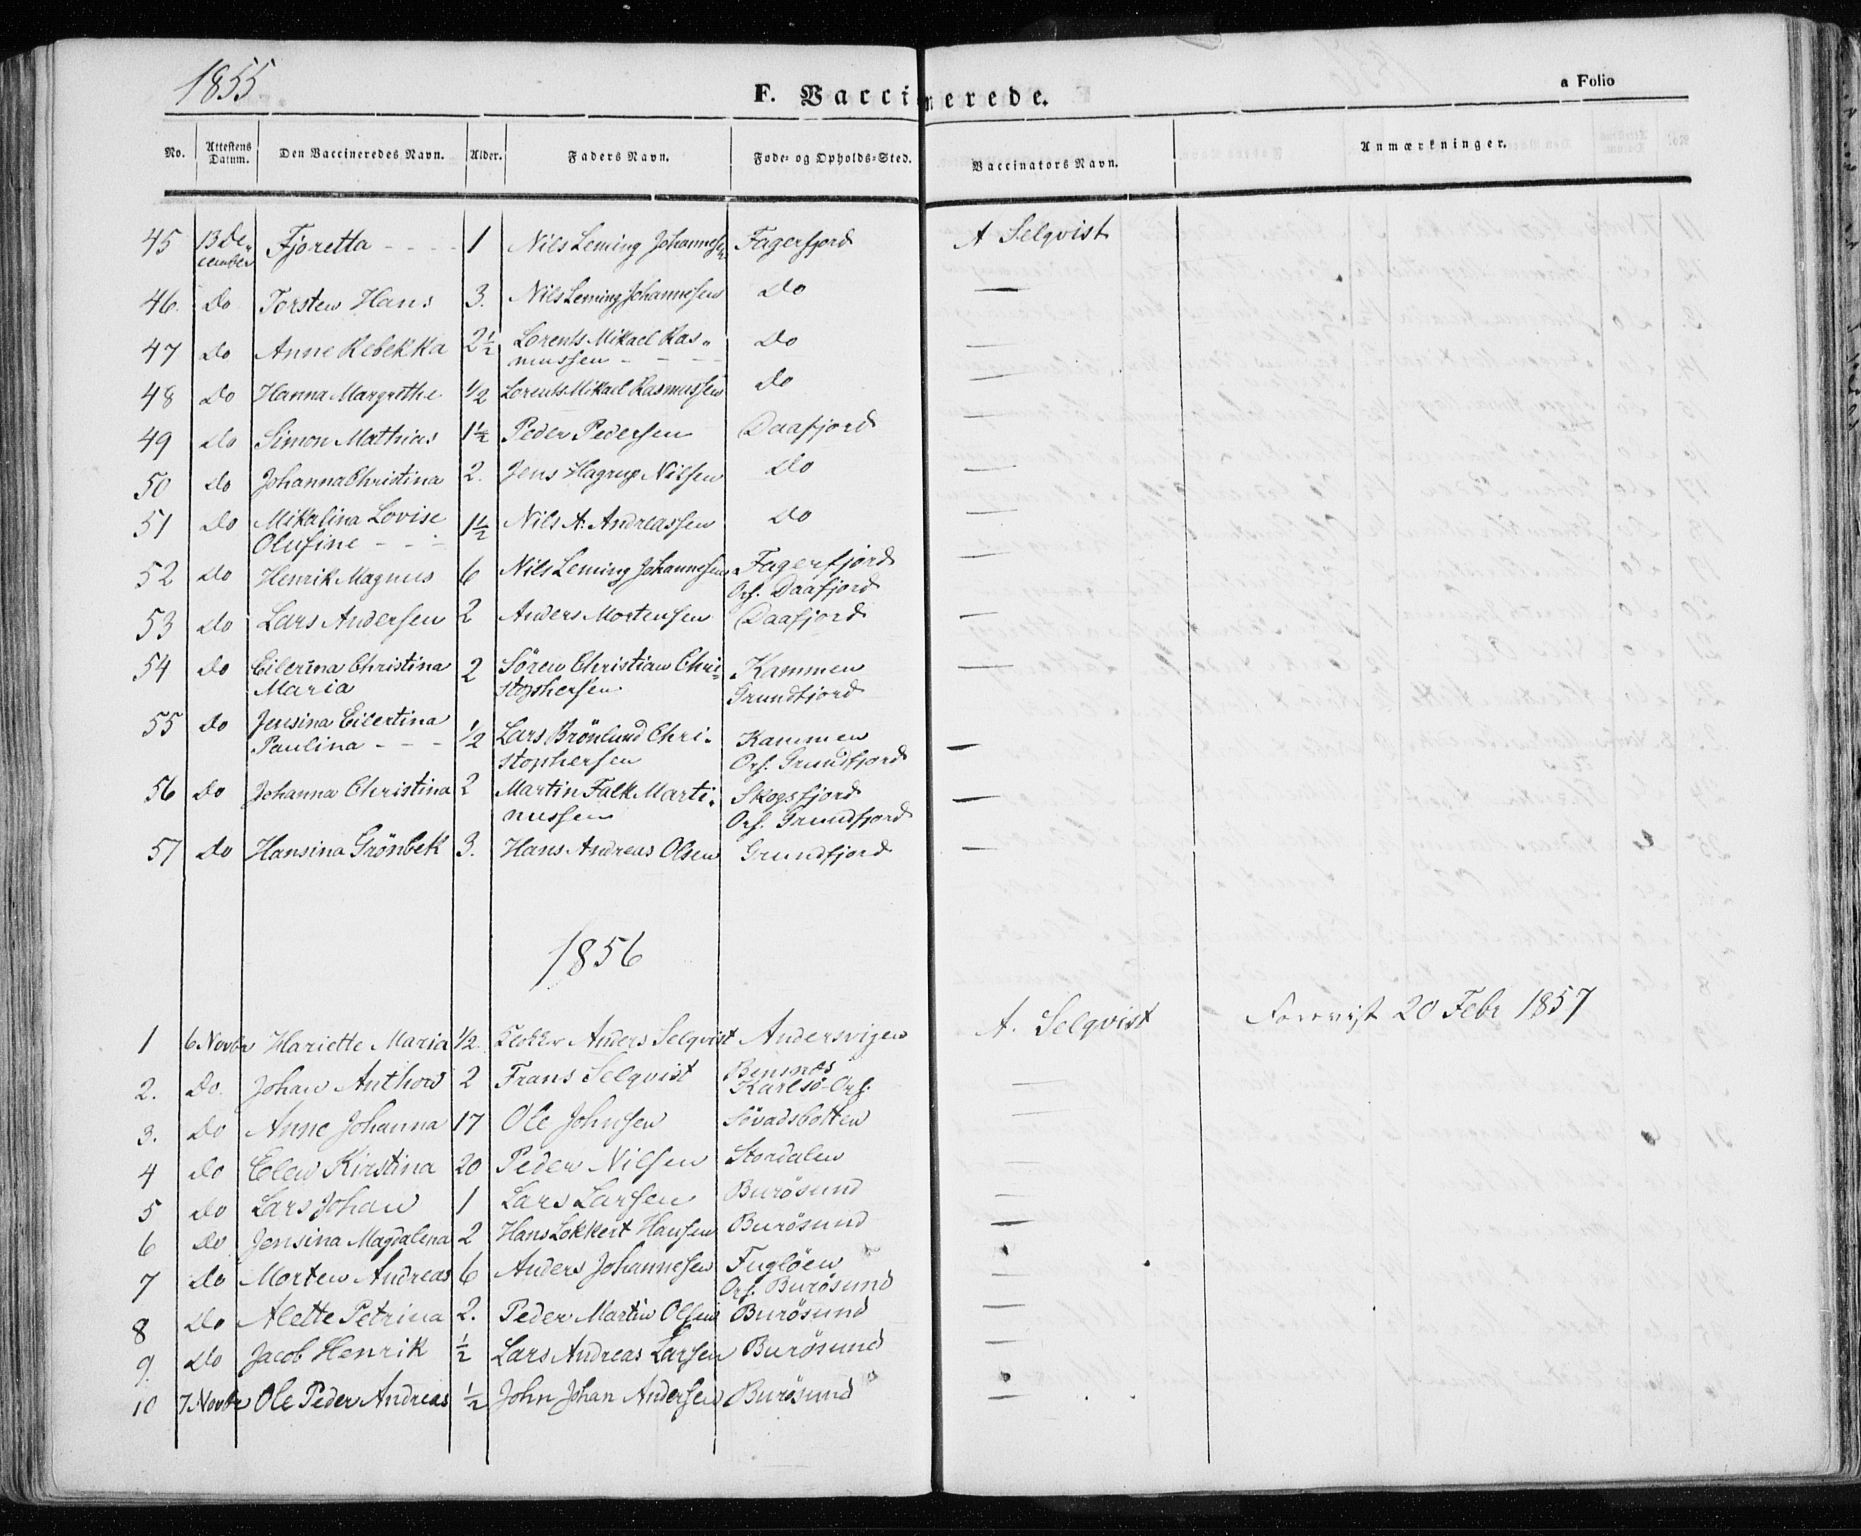 1855
F. Vaccinerede.
a Folio
No. Attestens Datum. Den Vaccineredes Navn. Alder. Faders Navn. Føde- og Opholds-Sted. Vaccinators Navn. Anmærkninger.
45 13 De„ Fjoretta - - - - 1 Nils Leming Johannesen Fagerfjord A Selqvist
cember
46. Do Torsten Hans 3. Nils Leming Johannesen Do —
47 Do Anne Rebekka 2½ Lorents Mikael Ras„ Do —
mussen - - - -
48 Do Hanna Margrethe ½ Lorents Mikael Rasmussen Do —
49 Do Simon Mathias 1½ Peder Pedersen Daafjord —
50 Do Johanna Christina 2. Jens Hagrup Nilsen Do —
51 Do Mikalina Lovise 1½ Nils A. Andreassen Do —
Olufine - - -
52 Do Henrik Magnus 6 Nils Leming Johannesen Fagerfjord —
Ops. Daafjord
53 Do Lars Andersen 2 Anders Mortensen Daafjord —
54 Do Eilerina Christina 2 Sören Christian Chri- Kammen —
Maria stophersen Grundfjord
55 Do Jensina Eilertina ½ Lars Brönlund Chri- Kammen —
Paulina - - - stophersen Ops. Grundfjord
56 Do Johanna Christina 2 Martin Falk Marti- Skogsfjord —
nussen Ops. Grundfjord
57 Do Hansina Grönbek 3. Hans Andreas Olsen Grundfjord —
1856
1 6 Novbr Hariette Maria ½ Anders Selqvist Andersvigen A. Selqvist Forevist 20 Febr 1857
2. Do. Johan Anthon 2 Frans Selqvist Bensnæs —
Karlsö-Ops.
3. Do Anne Johanna 17 Ole Johnsen Sövadsbotten —
4 Do Elen Kirstina 20 Peder Nilsen Stordalen —
5 Do Lars Johan 1 Lars Larsen Burösund —
6 Do Jensina Magdalena 2 Hans Lokkert Hansen Burösund —
7 Do Morten Andreas 6 Anders Johannesen Fuglöen —
Ops. Burösund
8 Do Alette Petrina 2. Peder Martin Olsen Burösund —
9. Do Jacob Henrik ½ Lars Andreas Larsen Burösund —
10 7 Novbr Ole Peder Andreas ½ John Johan Andersen Burösund —